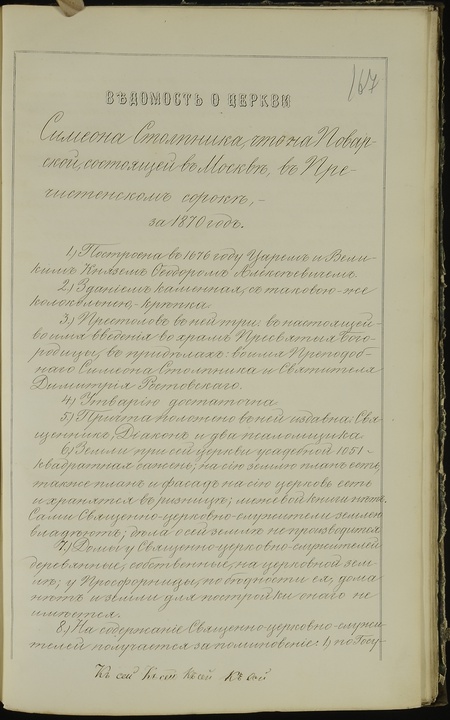 167
ВѢДОМОСТЬ О ЦЕРКВИ
Симеона Столпника, что на Повар-
ской, состоящей въ Москвѣ, въ Пре-
чистенскомъ сорокѣ, -
за 1870 годъ.
1) Построена въ 1676 году Царемъ и Вели-
кимъ Княземъ Ѳеодоромъ Алексѣевичемъ.
2) Зданіемъ каменная, съ таковою-же
колокольнею, - крѣпка.
3) Престоловъ въ ней три: въ настоящей -
во имя введенія во храмъ Пресвятыя Бого-
родицы; въ придѣлахъ: во имя Преподоб-
наго Симеона Столпника и Святителя
Димитрія Ростовскаго.
4) Утварію достаточна.
5) Причта положено въ ней издавна: Свя-
щенникъ, Діаконъ и два псаломщика.
6) Земли при сей церкви усадебной 1051 -
квадратная сажень; на сію землю планъ есть,
также планъ и фасадъ на сію церковь есть
и хранятся въ ризницѣ; межевой книги нѣтъ.
Сами Священно-церковно-служители землею
владѣютъ; дѣла о сей землѣ не производится.
7) Домы у Священно-церковно-служителей
деревянные, собственные, на церковной зем-
лѣ; у Просфорницы, по бѣдности ея, дома
нѣтъ и земли для постройки онаго не
имѣется.
8) На содержаніе Священно-церковно-служи-
телей получается за поминовеніе: 1) по Госу-
Къ сей Къ сей Къ сей Къ сей